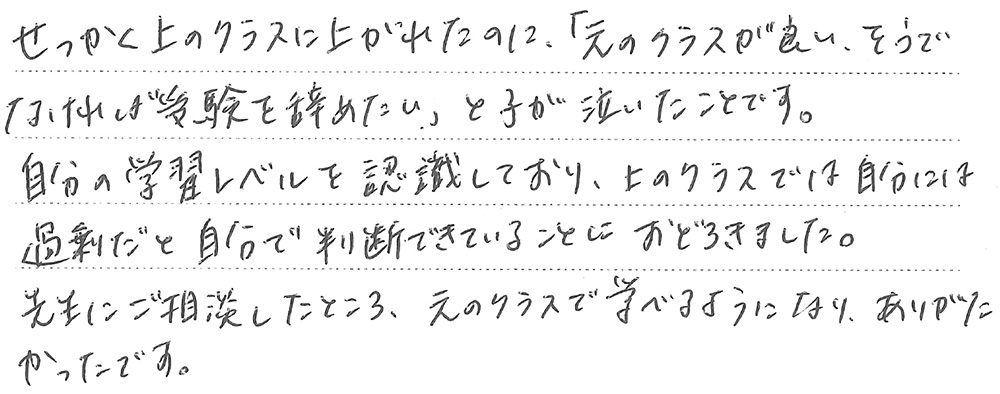 せっかく上のクラスに上がれたのに、「元のクラスが良い、そうで
なければ受験を辞めたい」と子が泣いたことです。
自分の学習レベルを認識しており、上のクラスでは自分には
過剰だと自分で判断できていることにおどろきました。
先生にご相談したところ、元のクラスで学べるようになり、ありがた
かったです。